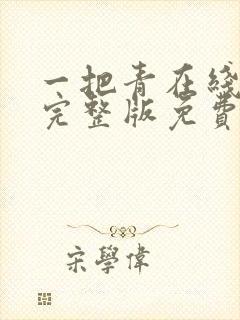 一把青在綫
完整版免費
宋學偉